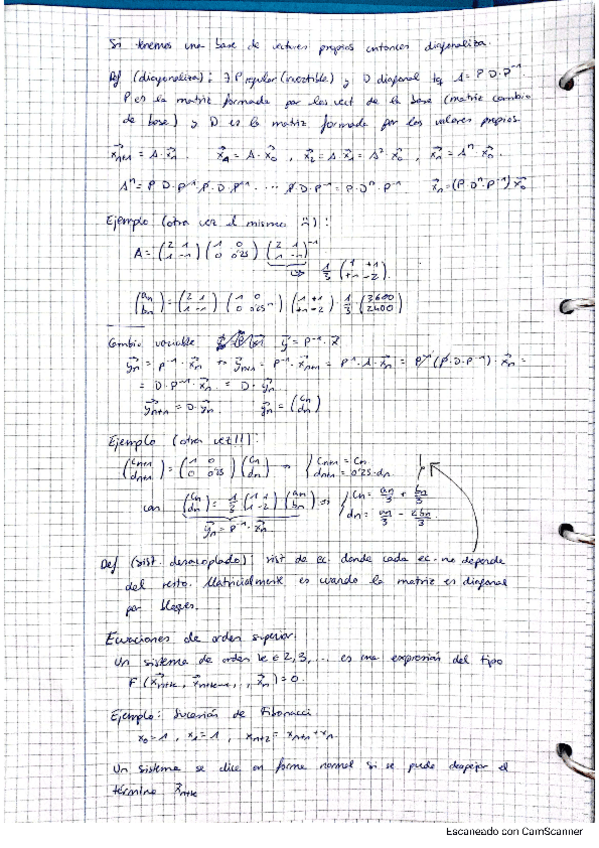 Si tenemos una base de vectores propios entonces diagonaliza.
Def (diagonaliza): ∃ P regular (invertible) y D diagonal tq A = P·D·P⁻¹.
P es la matriz formada por los vect de la base (matriz cambio
de base) y D es la matriz formada por los valores propios.
x⃗ₙ₊₁ = A·x⃗ₙ. x⃗₁ = A·x⃗₀, x⃗₂ = A·x⃗₁ = A²·x⃗₀, x⃗ₙ = Aⁿ·x⃗₀.
Aⁿ = P·D·P⁻¹·P·D·P⁻¹ ··· P·D·P⁻¹ = P·Dⁿ·P⁻¹. x⃗ₙ = (P·Dⁿ·P⁻¹)x⃗₀
Ejemplo (otra vez el mismo :
A = (2 1; 1 -1) (1 0; 0 0'25) (2 1; 1 -1)⁻¹
↳ 1/3 (1 +1; +1 -2).
(aₙ; bₙ) = (2 1; 1 -1) (1 0; 0 0'25ⁿ) (1 +1; +1 -2) · 1/3 (3600; 2400)
Cambio variable: y⃗ = P⁻¹·x⃗
y⃗ₙ = P⁻¹·x⃗ₙ → y⃗ₙ₊₁ = P⁻¹·x⃗ₙ₊₁ = P⁻¹·A·x⃗ₙ = P⁻¹(P·D·P⁻¹)·x⃗ₙ =
= D·P⁻¹·x⃗ₙ = D·y⃗ₙ
y⃗ₙ₊₁ = D·y⃗ₙ y⃗ₙ = (cₙ; dₙ)
Ejemplo (otra vez!!):
(cₙ₊₁; dₙ₊₁) = (1 0; 0 0'25) (cₙ; dₙ) → { cₙ₊₁ = cₙ; dₙ₊₁ = 0'25·dₙ
con (cₙ; dₙ) = 1/3 (1 1; 1 -2) (aₙ; bₙ) → { cₙ = aₙ/3 + bₙ/3; dₙ = aₙ/3 - 2bₙ/3.
y⃗ₙ = P⁻¹·x⃗ₙ
Def (sist. desacoplado): sist de ec. donde cada ec. no depende
del resto. Matricialmente es cuando la matriz es diagonal
por bloques.
Ecuaciones de orden superior.
Un sistema de orden k ∈ 2, 3, ... es una expresión del tipo
F(x⃗ₙ₊ₖ, x⃗ₙ₊ₖ₋₁, , x⃗ₙ) = 0.
Ejemplo: Sucesión de Fibonacci.
x₀ = 1, x₁ = 1, xₙ₊₂ = xₙ₊₁ + xₙ.
Un sistema se dice en forma normal si se puede despejar el
término x⃗ₙ₊ₖ
Escaneado con CamScanner